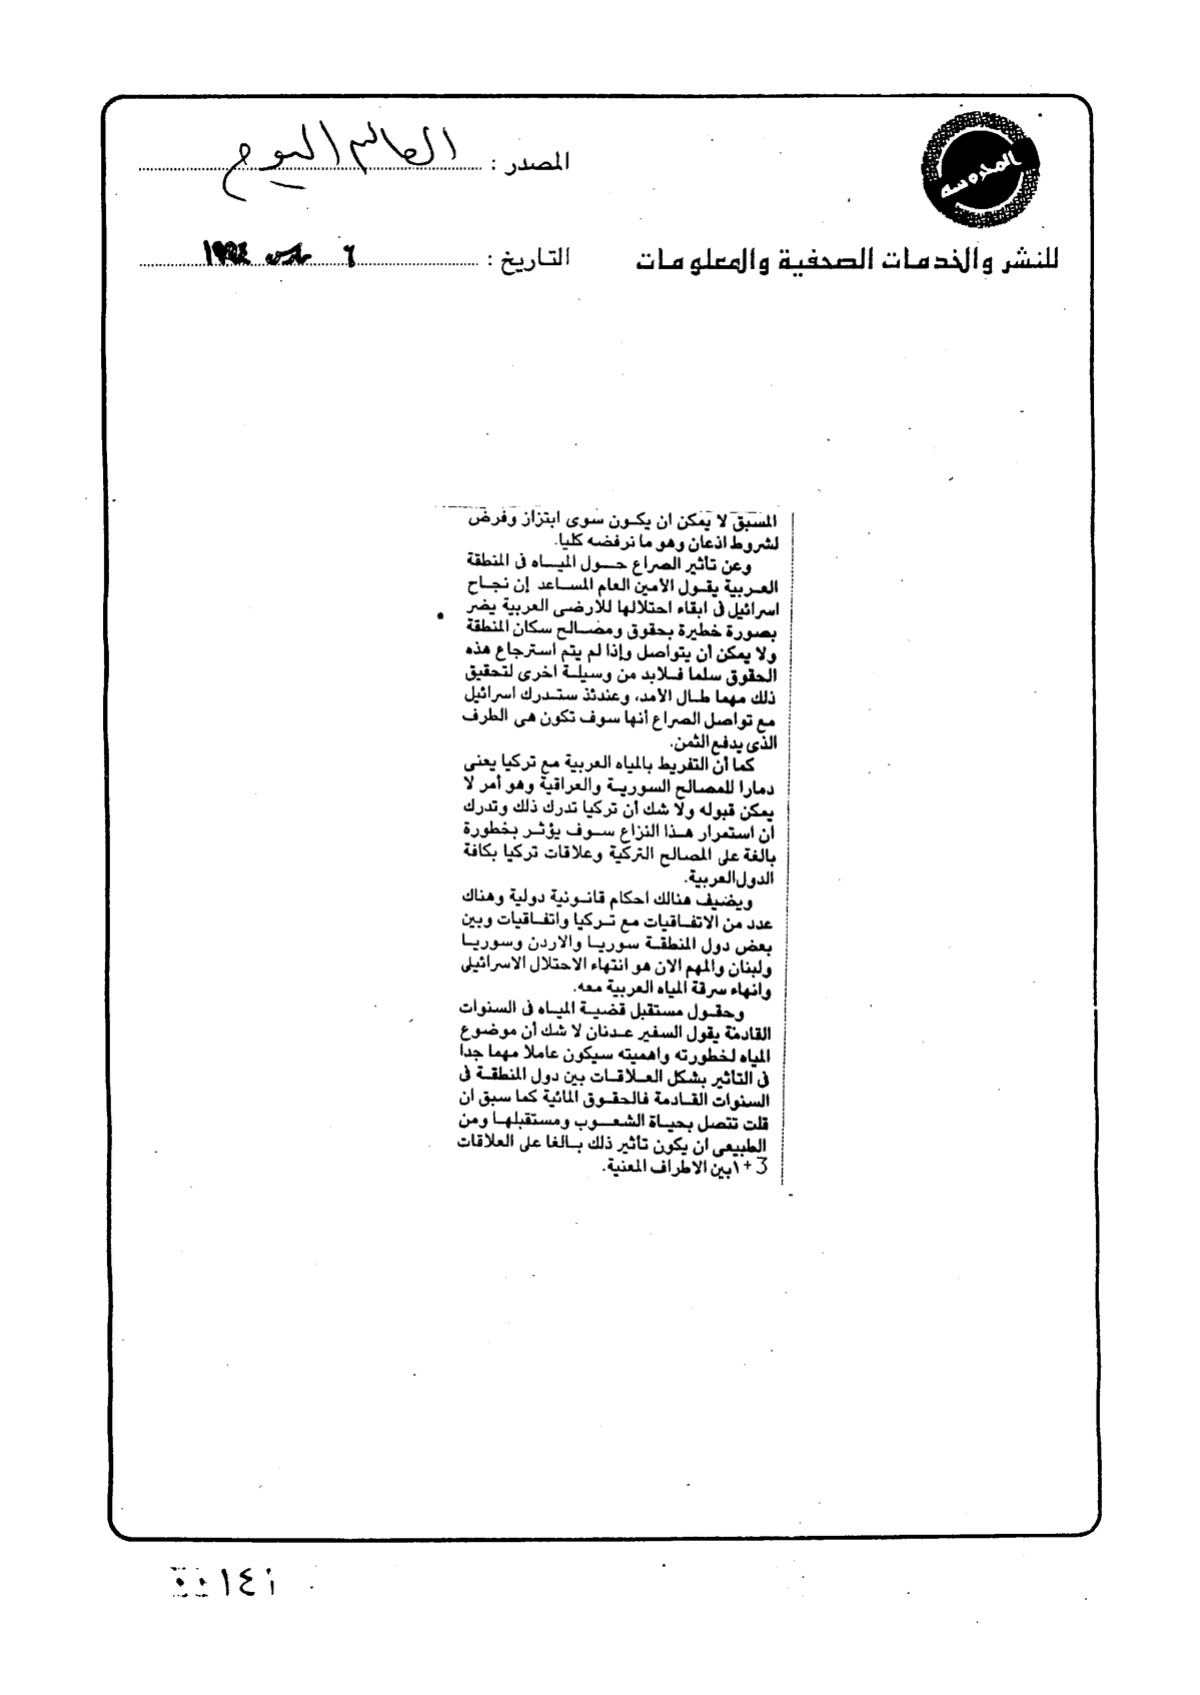 المحروسه
المصدر : العالم اليوم
للنشر والخدمات الصحفية والمعلومات
التاريخ : ٦ مارس ١٩٩٤
المسبق لا يمكن ان يكون سوى ابتزاز وفرض
لشروط اذعان وهو ما نرفضه كليا.
وعن تأثير الصراع حول المياه فى المنطقة
العربية يقول الأمين العام المساعد إن نجاح
اسرائيل فى ابقاء احتلالها للارضى العربية يضر
بصورة خطيرة بحقوق ومصالح سكان المنطقة
ولا يمكن أن يتواصل وإذا لم يتم استرجاع هذه
الحقوق سلما فلابد من وسيلة اخرى لتحقيق
ذلك مهما طال الأمد، وعندئذ ستدرك اسرائيل
مع تواصل الصراع أنها سوف تكون هى الطرف
الذى يدفع الثمن.
كما أن التفريط بالمياه العربية مع تركيا يعنى
دمارا للمصالح السورية والعراقية وهو أمر لا
يمكن قبوله ولا شك أن تركيا تدرك ذلك وتدرك
ان استمرار هذا النزاع سوف يؤثر بخطورة
بالغة على المصالح التركية وعلاقات تركيا بكافة
الدول العربية.
ويضيف هنالك احكام قانونية دولية وهناك
عدد من الاتفاقيات مع تركيا واتفاقيات وبين
بعض دول المنطقة سوريا والاردن وسوريا
ولبنان والمهم الان هو انتهاء الاحتلال الاسرائيلى
وانهاء سرقة المياه العربية معه.
وحقول مستقبل قضية المياه فى السنوات
القادمة يقول السفير عدنان لا شك أن موضوع
المياه لخطورته واهميته سيكون عاملا مهما جدا
فى التأثير بشكل العلاقات بين دول المنطقة فى
السنوات القادمة فالحقوق المائية كما سبق ان
قلت تتصل بحياة الشعوب ومستقبلها ومن
الطبيعى ان يكون تأثير ذلك بالغا على العلاقات
3+١بين الاطراف المعنية.